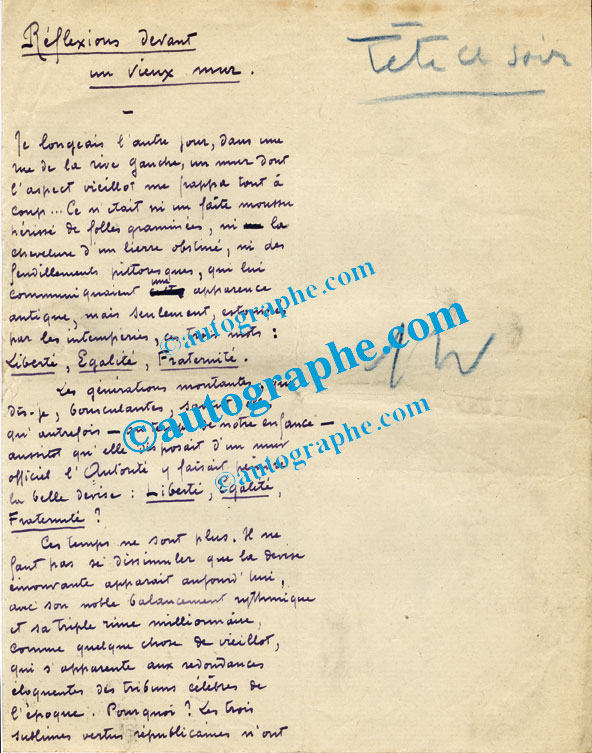 Réflexions devant
un vieux mur.
Tête ce soir
Je longeais l'autre jour, dans une
rue de la rive gauche, un mur dont
l'aspect vieillot me frappa tout à
coup... Ce n'était ni un faîte moussu
hérissé de folles graminées, ni la
chevelure d'un lierre obstiné, ni des
fendillements pittoresques, qui lui
communiquaient une apparence
antique, mais seulement, estompés
par les intempéries, ces trois mots :
Liberté, Egalité, Fraternité.
Les générations montantes, que
dis-je, bousculantes,
qu'autrefois — de notre enfance —
aussitôt qu'elle disposait d'un mur
officiel l'Autorité y faisait peindre
la belle devise : Liberté, Egalité,
Fraternité ?
Ces temps ne sont plus. Il ne
faut pas se dissimuler que la devise
émouvante apparaît aujourd'hui,
avec son noble balancement rythmique
et sa triple rime millionnaire,
comme quelque chose de vieillot,
qui s'apparente aux redondances
éloquentes des tribuns célèbres de
l'époque. Pourquoi ? Les trois
sublimes vertus républicaines n'ont
©autographe.com
©autographe.com
©autographe.com